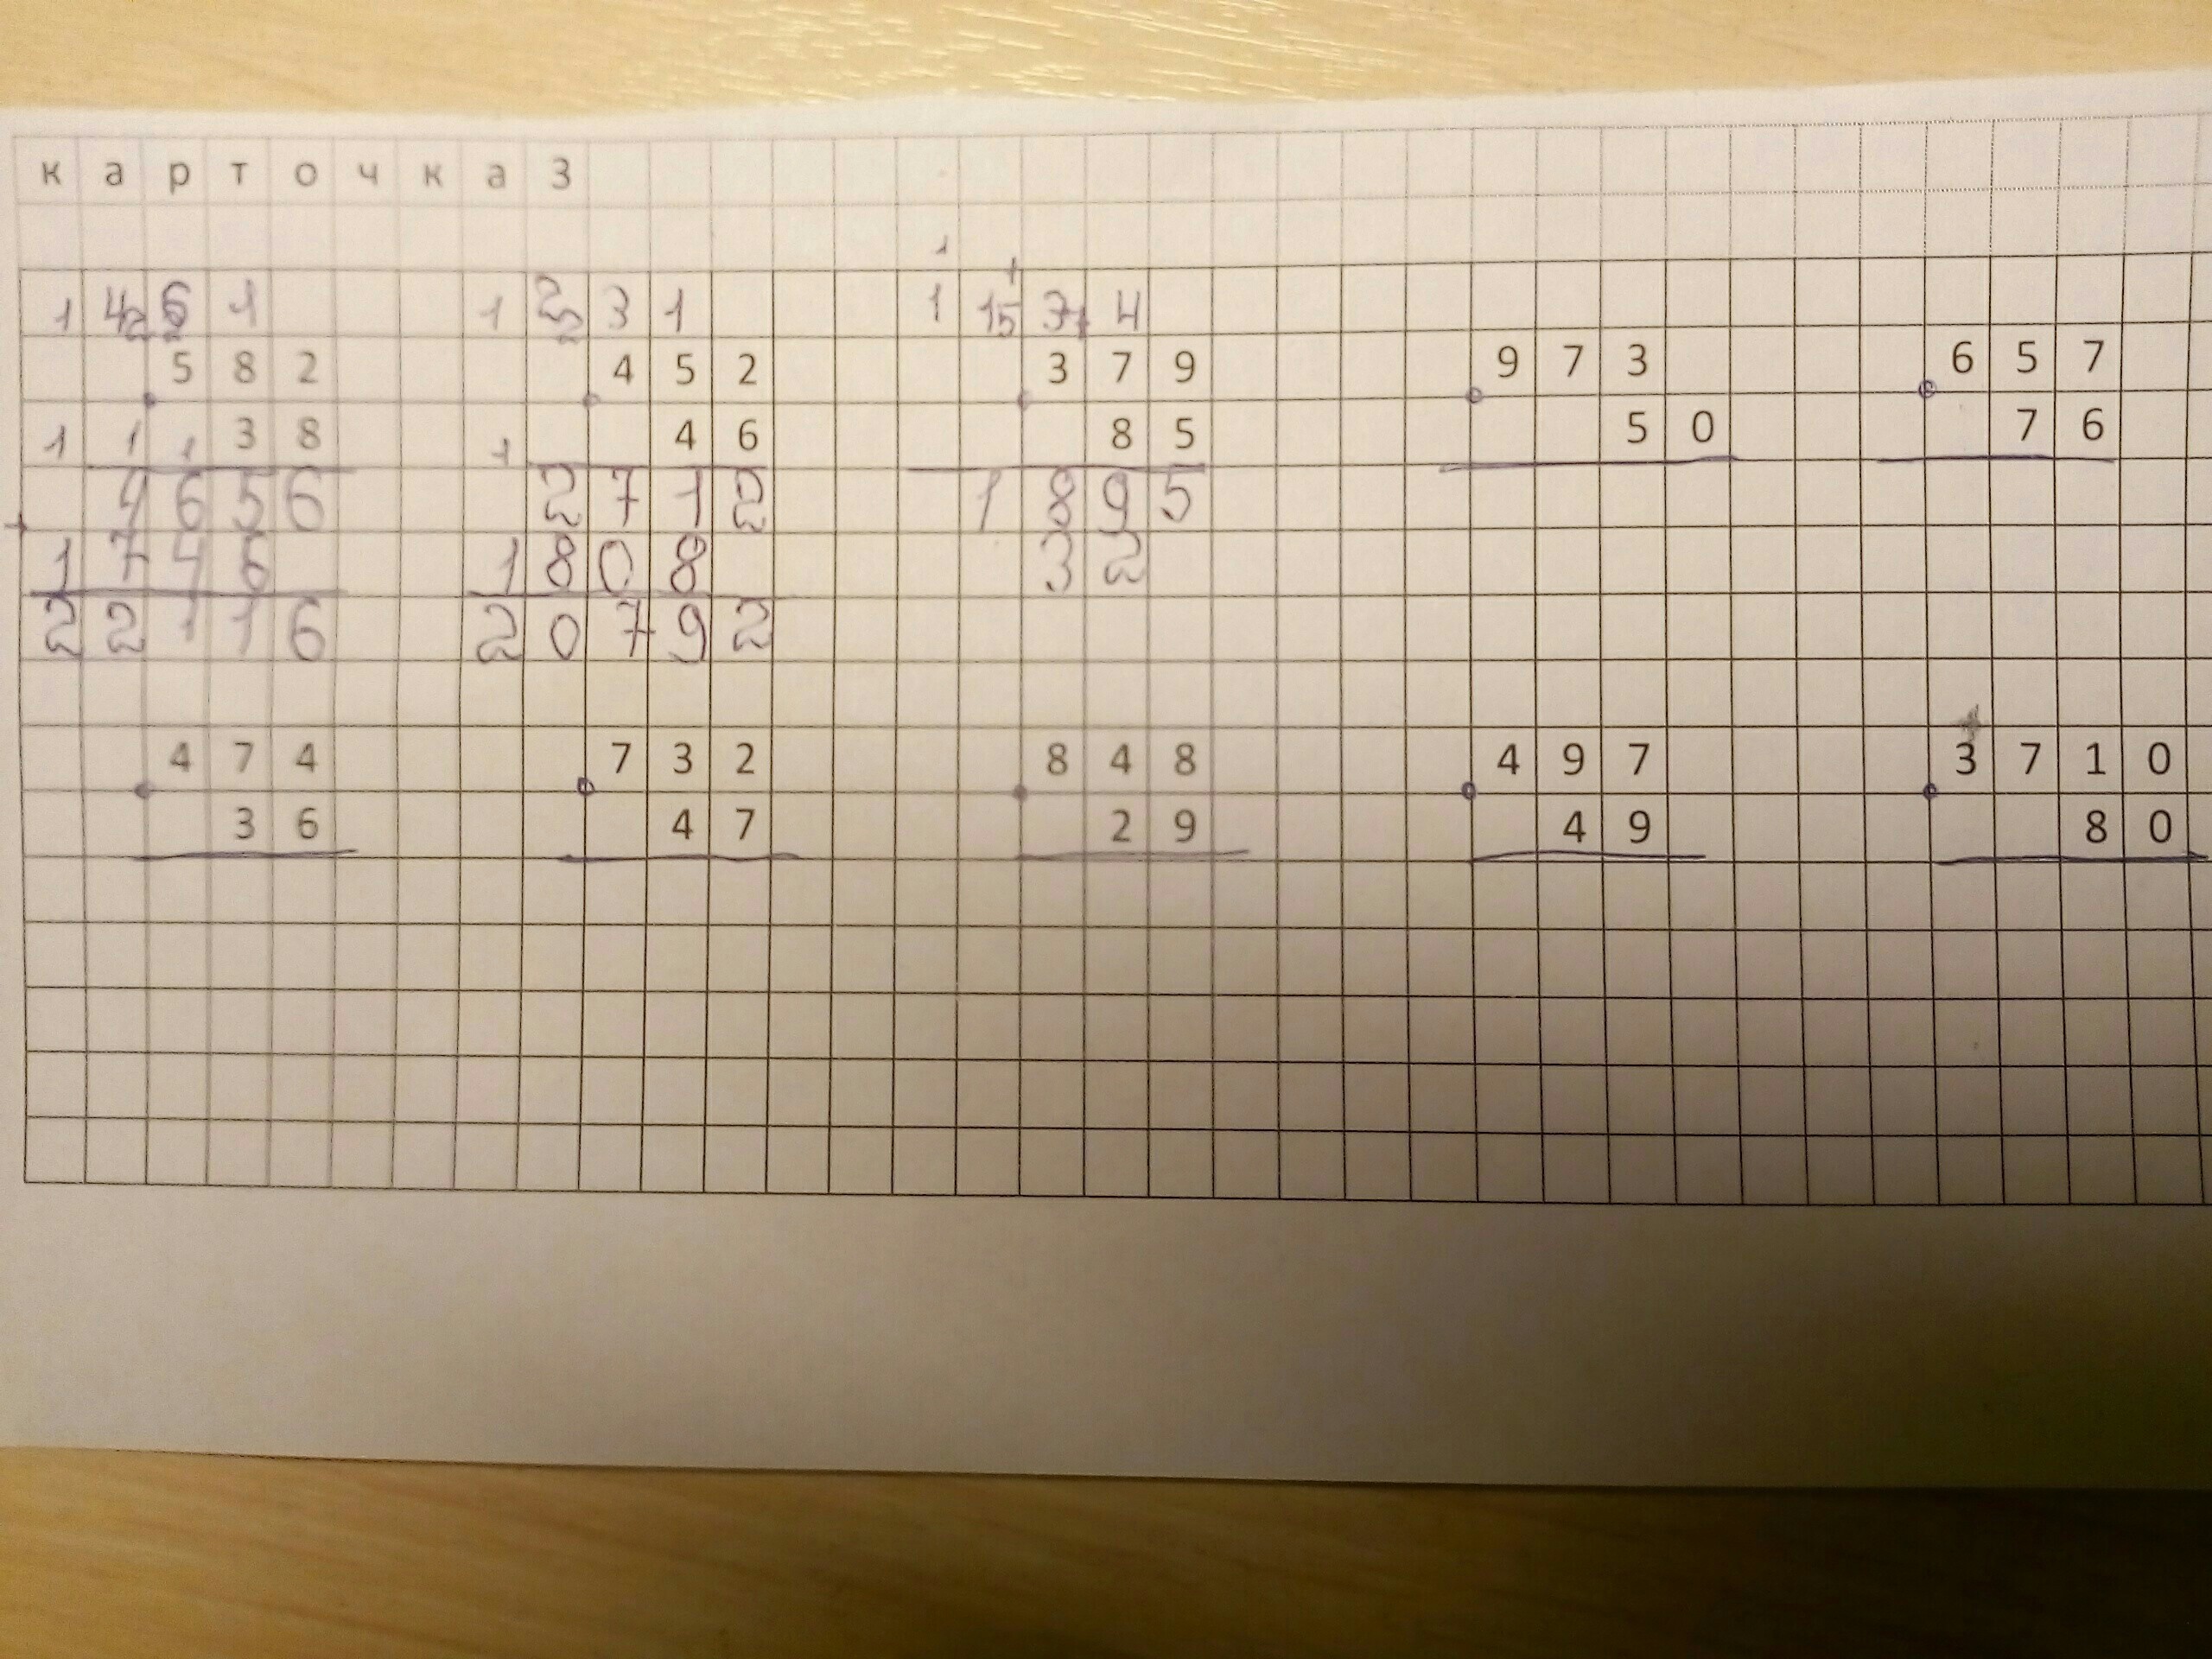 карточка 3
1 4 6 1 1 2 3 1 1 15 3 4
582 452 379 973 657
1 1 1 38 1 46 85 50 76
4656 2712 1895
+ 1746 1808 32
22116 20792
474 732 848 497 3710
36 47 29 49 80